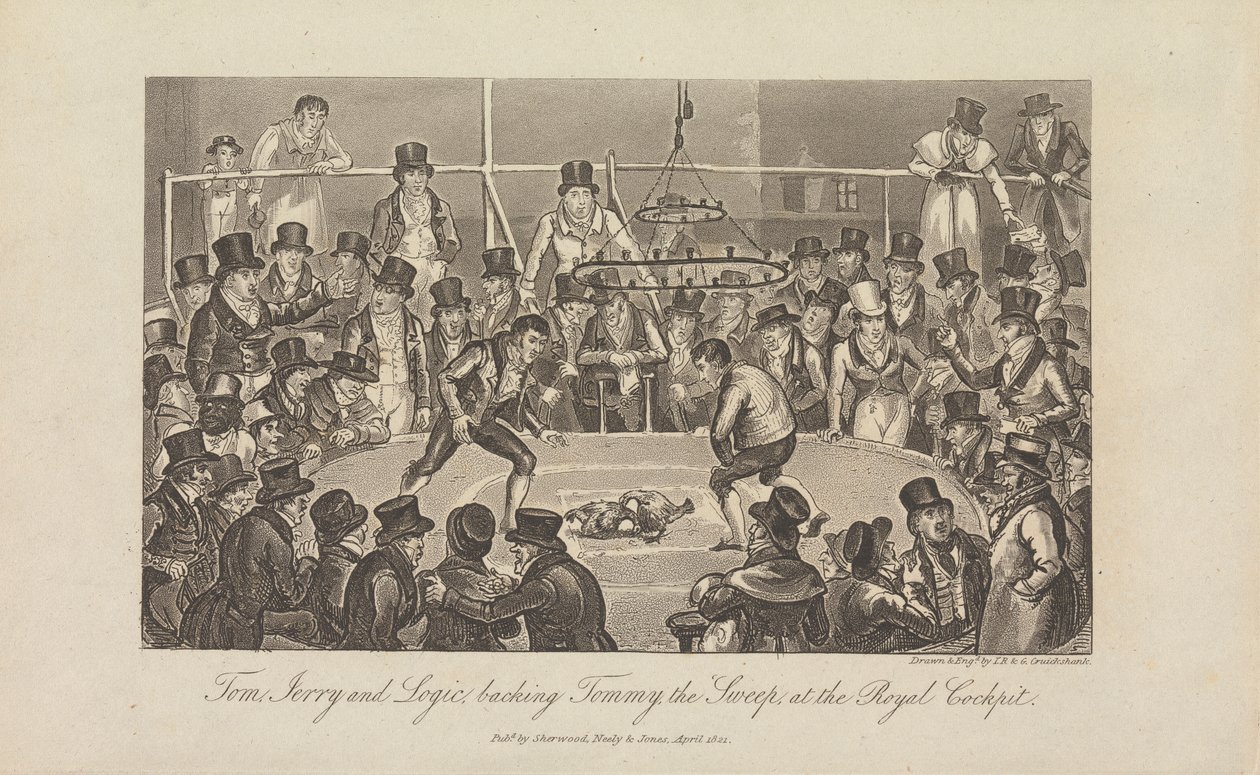 Drawn & Eng.d by I.R. & G. Cruickshank.
Tom, Jerry and Logic, backing Tommy, the Sweep, at the Royal Cockpit.
Pub.d by Sherwood, Neely & Jones, April 1821.